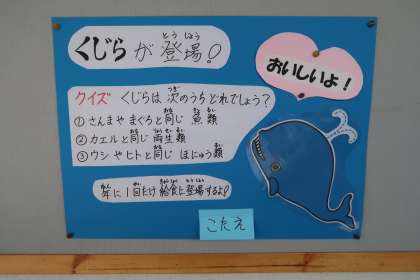 くじらが登場!
とうじょう
おいしいよ!
クイズ くじらは次のうちどれでしょう?
つぎ
①さんまやまぐろと同じ魚類
おな ぎょるい
②カエルと同じ両生類
おな りょうせいるい
③ウシやヒトと同じほにゅう類
おな るい
年に1回だけ給食に登場するよ!
ねん かい きゅうしょく とうじょう
こたえ